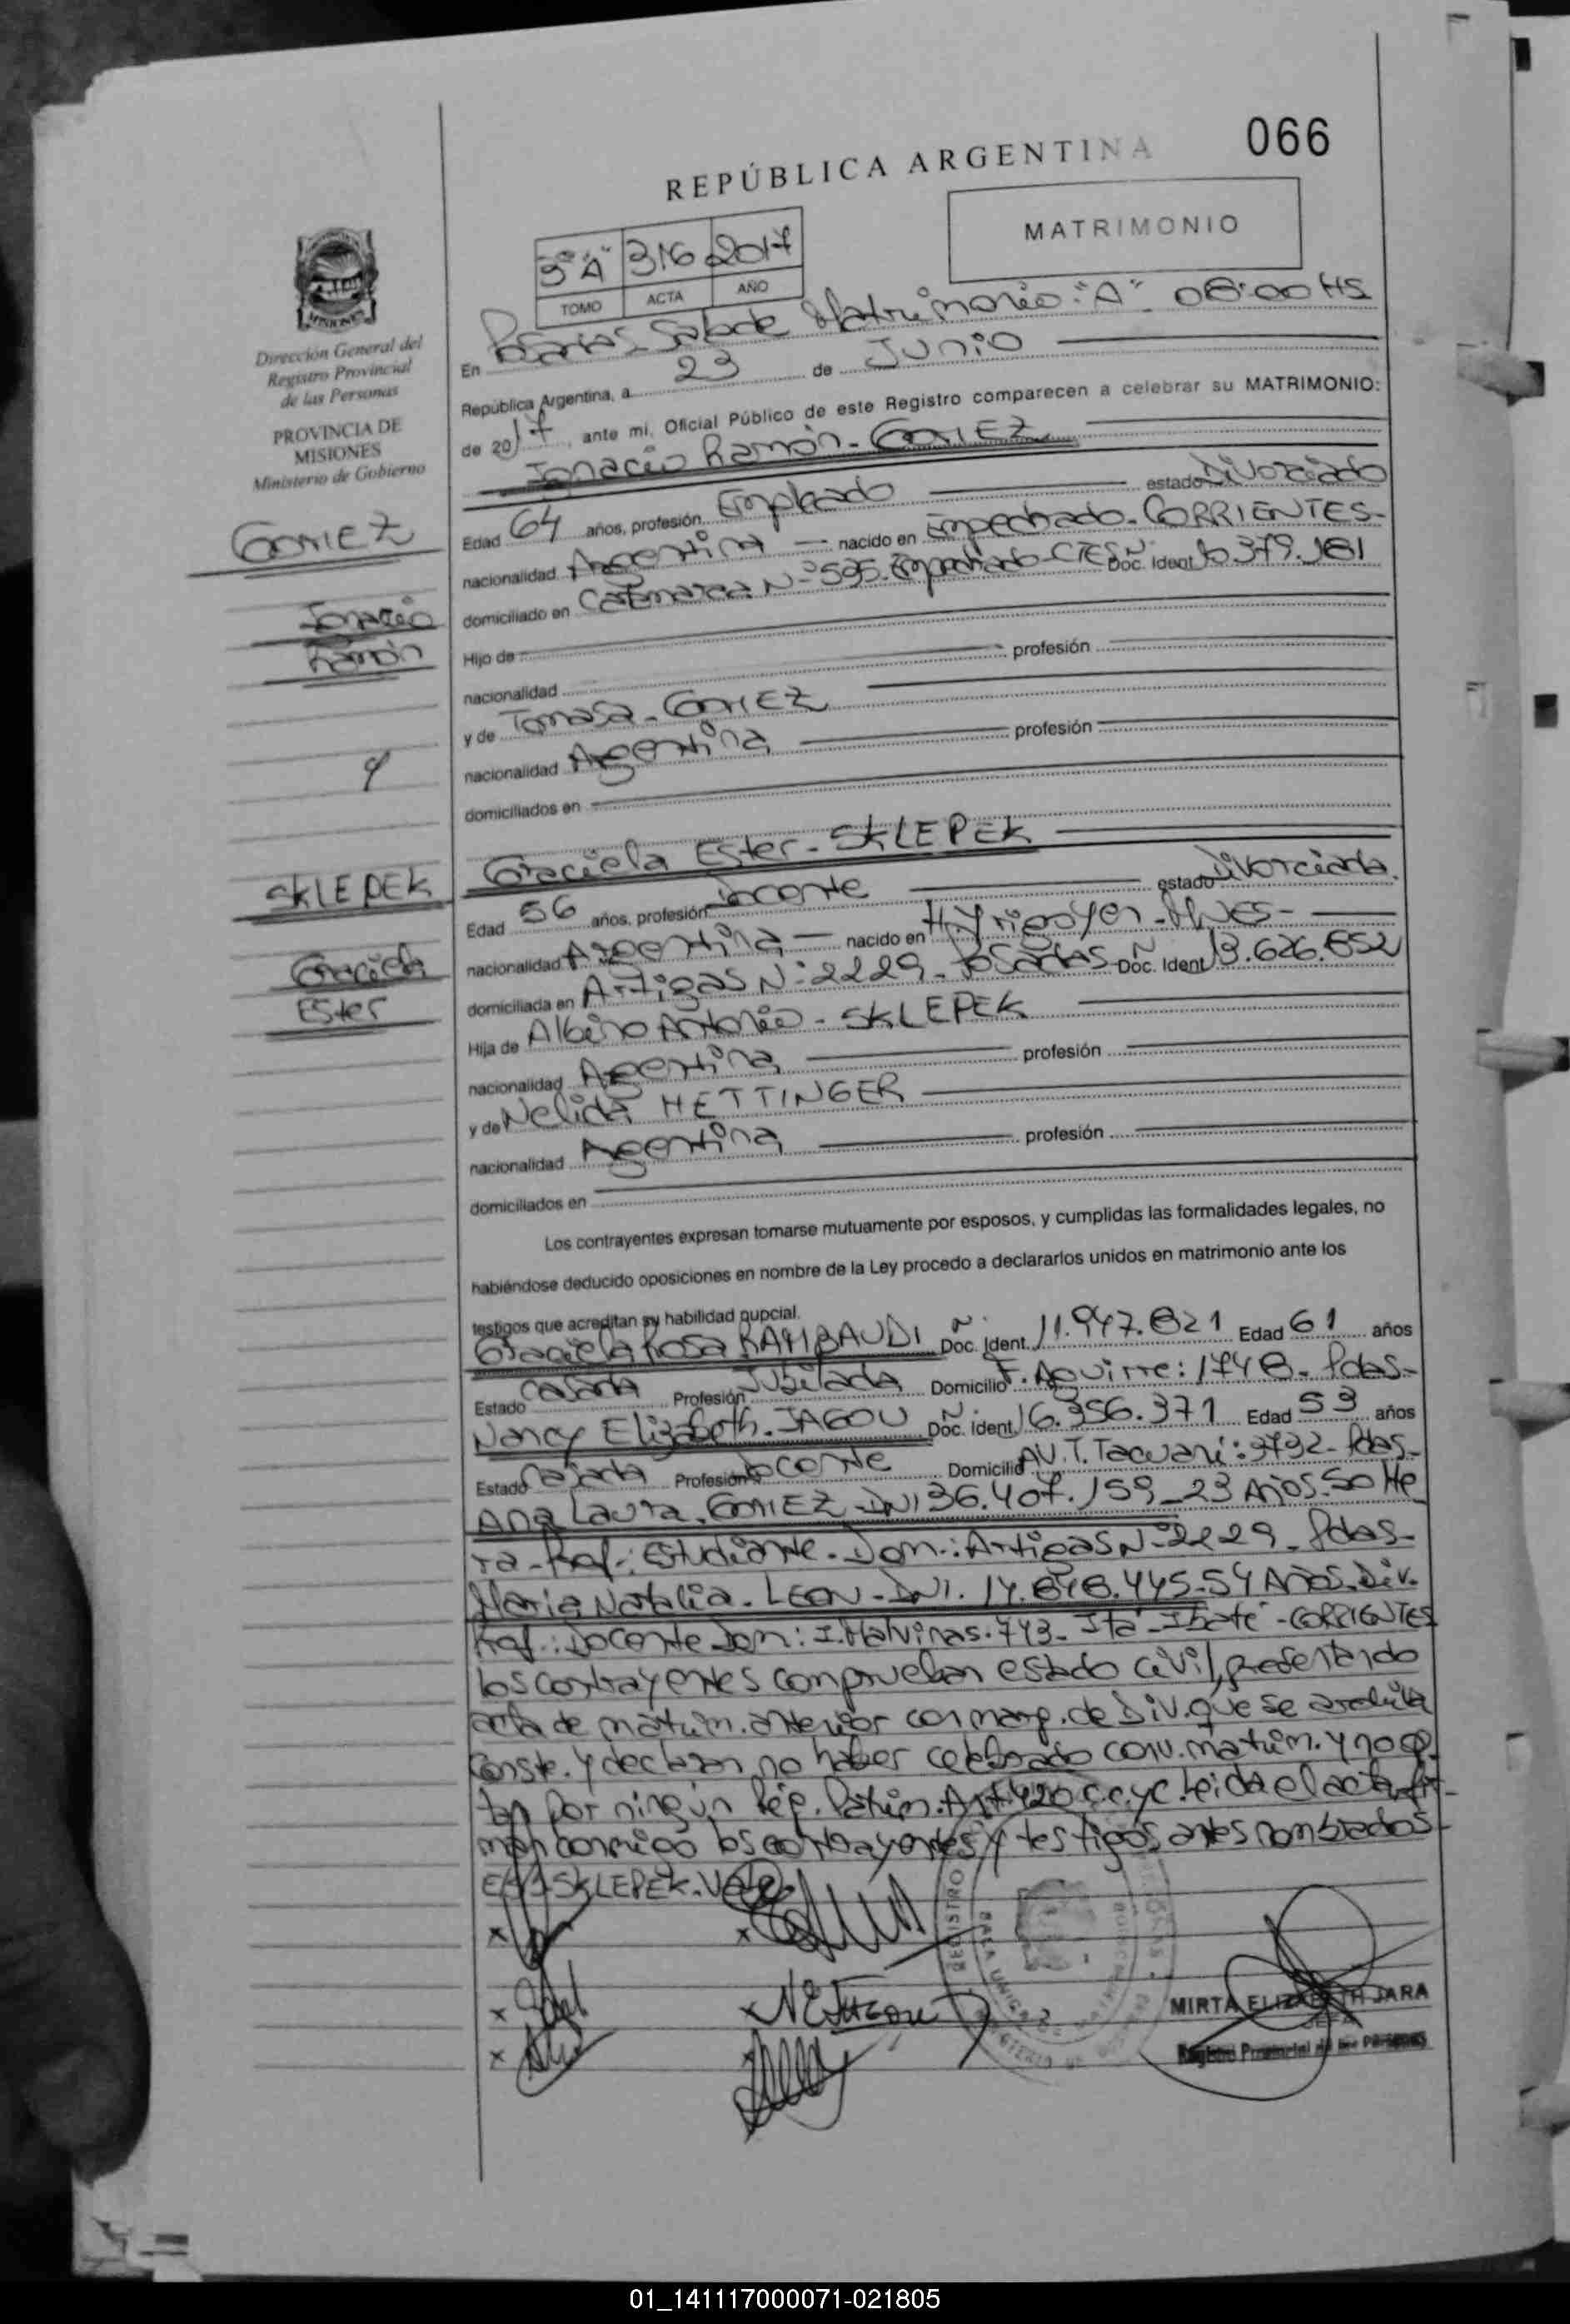 066
REPÚBLICA ARGENTINA
MATRIMONIO
3º"A" 316 2017
TOMO ACTA AÑO
MISIONES
Dirección General del
Registro Provincial
de las Personas
PROVINCIA DE
MISIONES
Ministerio de Gobierno
En Posadas Sala de Matrimonio "A" 08:00 HS
República Argentina, a 23 de JUNIO
de 2017, ante mí, Oficial Público de este Registro comparecen a celebrar su MATRIMONIO:
Ignacio Ramón - GOMEZ
Edad 64 años, profesión Empleado estado Divorciado
nacionalidad Argentina nacido en Empedrado - CORRIENTES-
domiciliado en Catamarca Nº 595. Empedrado - CTES Doc. Ident. 10.379.181
Hijo de
nacionalidad profesión
y de Tomasa - GOMEZ
nacionalidad Argentina profesión
domiciliados en
GOMEZ
Ignacio
Ramón
y
SKLEPEK
Graciela
Ester
Graciela Ester - SKLEPEK
Edad 56 años, profesión Docente estado Divorciada.
nacionalidad Argentina nacido en H. Yrigoyen - MNES-
domiciliada en Artigas Nº: 2229 - Posadas Doc. Ident 13.626.852
Hija de Albino Antonio - SKLEPEK
nacionalidad Argentina profesión
y de Nelida HETTINGER
nacionalidad Argentina profesión
domiciliados en
Los contrayentes expresan tomarse mutuamente por esposos, y cumplidas las formalidades legales, no
habiéndose deducido oposiciones en nombre de la Ley procedo a declararlos unidos en matrimonio ante los
testigos que acreditan su habilidad nupcial.
Graciela Rosa RAMBAUDI Doc. Ident. 11.947.821 Edad 61 años
Estado Casada Profesión Jubilada Domicilio F. Aguirre: 1748 - Pdas-
Nancy Elizabeth. JAGOU Doc. Ident 16.356.371 Edad 53 años
Estado Casada Profesión Docente Domicilio AV. T. Tacuari: 3792 - Pdas-
Ana Laura. GOMEZ - DNI 36.407.159 - 23 Años. Solte
ra - Prof.: Estudiante - Dom.: Artigas Nº 2229 - Pdas-
Maria Natalia - LEON - DNI. 17.848.445 - 54 Años. Div.
Prof.: Docente Dom: I. Malvinas. 743 - Itá - Ibaté - CORRIENTES
los contrayentes comprueban estado civil, presentando
acta de matrim. anterior con marg. de Div. que se archiva
Conste. y declaran no haber celebrado conv. matrim. y no op
tan por ningún Rég. Patrim. Art 420 C.C. y C. Leida el acta, fir-
man conmigo los contrayentes y testigos antes nombrados-
SKLEPEK. Vale
x x
x x N E JAGOU
x
REGISTRO
MIRTA ELIZABETH JARA
JEFA
Registro Provincial de las Personas
01_141117000071-021805